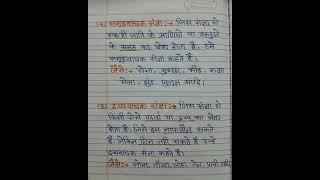 (4) समूहवाचक संज्ञा :→ जिस संज्ञा से
एक ही जाति के प्राणियों या वस्तुओं
के समूह का बोध होता है, उसे
समूहवाचक संज्ञा कहते हैं।
जैसे:- सेना, गुच्छा, भीड़, कक्षा
मेला, झुंड, जुलूस आदि।
(5) द्रव्यवाचक संज्ञा :→ जिस संज्ञा से
किसी ठोस पदार्थ या द्रव्य का बोध
होता है, जिसे हम नाप-तौल सकते
हैं, लेकिन गिन नहीं सकते हैं उन्हें
द्रव्यवाचक संज्ञा कहते हैं।
जैसे:- सोना, लोहा, तेल, पानी